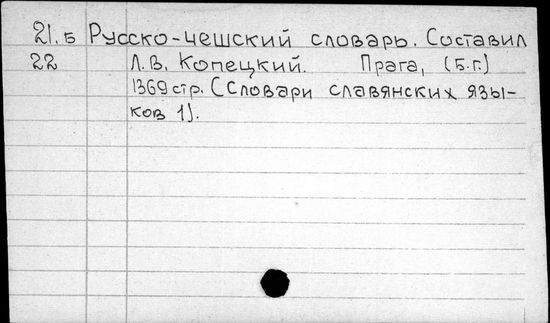 21.Б Русско-чешский словарь. Составил
22 Л.В. Копецкий. Прага, (Б.г.)
1369 стр. (Словари славянских язы-
ков 1).